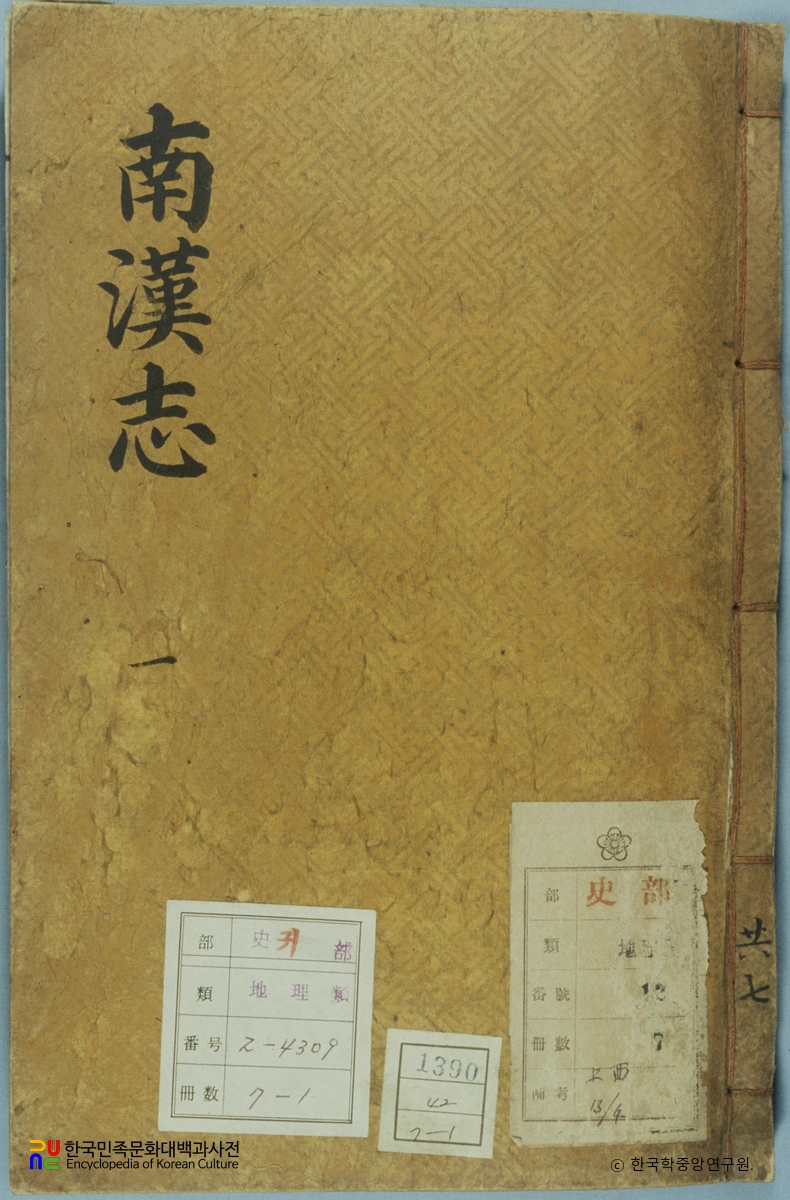 南漢志
一
共七
部 史 귀 部
類 地理類
番号 2-4309
冊数 7-1
1390
42
7-1
部 史部
類 地
番號 12
冊數 7
備考 上西
13/4
한국민족문화대백과사전
Encyclopedia of Korean Culture
© 한국학중앙연구원